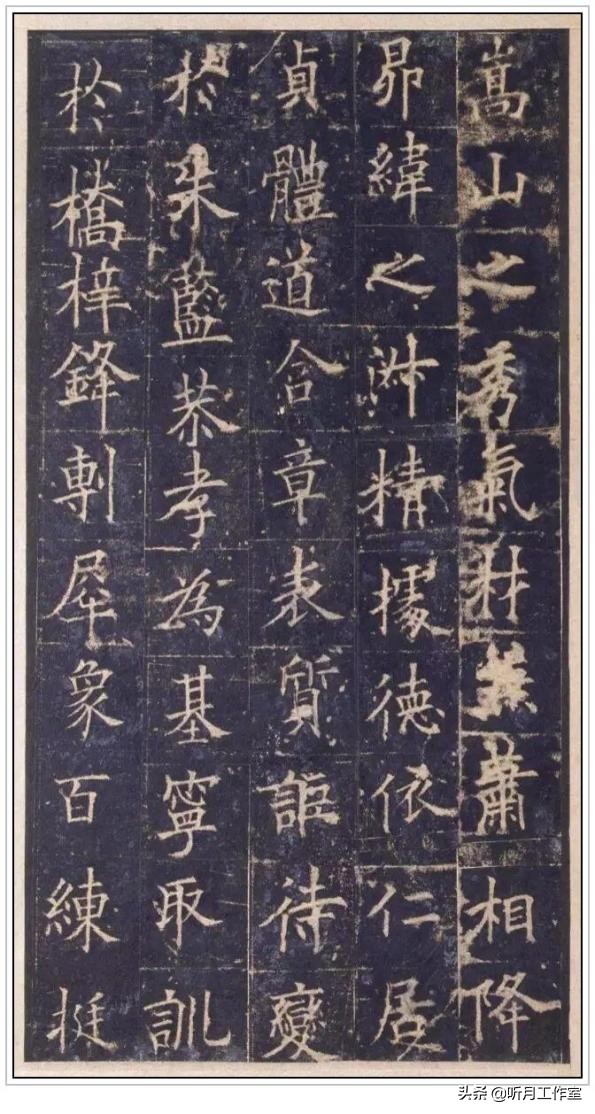 嵩山之秀氣材兼蕭相降
昴緯之淑精據德依仁居
貞體道含章表質詎待變
於朱藍恭孝為基寧取訓
於橋梓鋒剸犀象百練挺
头条 @听月工作室